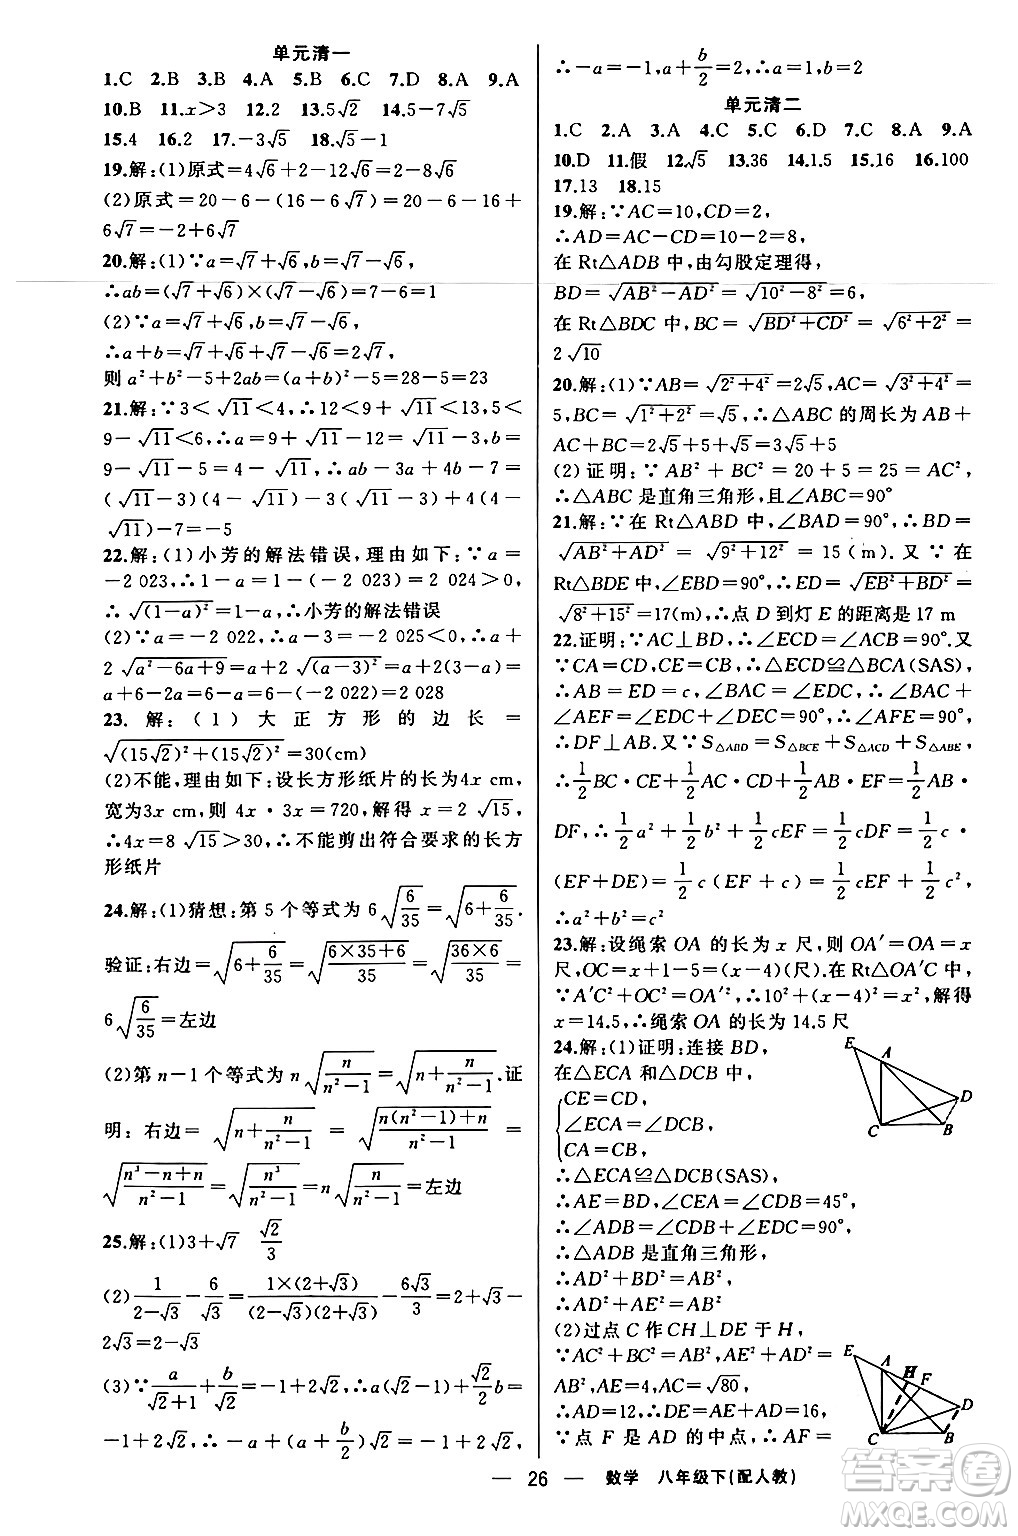 单元清一
1.C 2.B 3.B 4.A 5.B 6.C 7.D 8.A 9.A
10.B 11.x>3 12.2 13.5√2 14.5-7√5
15.4 16.2 17.-3√5 18.√5-1
19.解:(1)原式=4√6+2√6-12√6=-6√6
(2)原式=20-6-(16-6√7)=20-6-16+
6√7=-2+6√7
20.解:(1)∵a=√7+√6,b=√7-√6,
∴ab=(√7+√6)×(√7-√6)=7-6=1
(2)∵a=√7+√6,b=√7-√6,
∴a+b=√7+√6+√7-√6=2√7,
则a²+b²-5+2ab=(a+b)²-5=28-5=23
21.解:∵3<√11<4,∴12<9+√11<13,5<
9-√11<6,∴a=9+√11-12=√11-3,b=
9-√11-5=4-√11,∴ab-3a+4b-7=
(√11-3)(4-√11)-3(√11-3)+4(4-
√11)-7=-5
22.解:(1)小芳的解法错误,理由如下:∵a=
-2 023,∴1-a=1-(-2 023)=2 024>0,
∴√(1-a)²=1-a,∴小芳的解法错误
(2)∵a=-2 022,∴a-3=-2 025<0,∴a+
2√a²-6a+9=a+2√(a-3)²=a+2(3-a)=
a+6-2a=6-a=6-(-2 022)=2 028
23.解:(1)大正方形的边长=
√(15√2)²+(15√2)²=30(cm)
(2)不能,理由如下:设长方形纸片的长为4x cm,
宽为3x cm,则4x·3x=720,解得x=2√15,
∴4x=8√15>30,∴不能剪出符合要求的长方
形纸片
24.解:(1)猜想:第5个等式为6√(6/35)=√(6+6/35).
验证:右边=√(6+6/35)=√((6×35+6)/35)=√((36×6)/35)=
6√(6/35)=左边
(2)第n-1个等式为n√(n/(n²-1))=√(n+n/(n²-1)).证
明:右边=√(n+n/(n²-1))=√((n(n²-1)+n)/(n²-1))=
√((n³-n+n)/(n²-1))=√(n³/(n²-1))=n√(n/(n²-1))=左边
25.解:(1)3+√7 √2/3
(2)1/(2-√3)-6/√3=(1×(2+√3))/((2-√3)(2+√3))-6√3/3=2+√3-
2√3=2-√3
(3)∵a/(√2+1)+b/√2=-1+2√2,∴a(√2-1)+(√2/2)b=
-1+2√2,∴-a+(a+b/2)√2=-1+2√2,
∴-a=-1,a+b/2=2,∴a=1,b=2
单元清二
1.C 2.A 3.A 4.C 5.C 6.D 7.C 8.A 9.A
10.D 11.假 12.√5 13.36 14.1.5 15.16 16.100
17.13 18.15
19.解:∵AC=10,CD=2,
∴AD=AC-CD=10-2=8,
在Rt△ADB中,由勾股定理得,
BD=√AB²-AD²=√10²-8²=6,
在Rt△BDC中,BC=√BD²+CD²=√6²+2²=
2√10
20.解:(1)∵AB=√2²+4²=2√5,AC=√3²+4²=
5,BC=√1²+2²=√5,∴△ABC的周长为AB+
AC+BC=2√5+5+√5=3√5+5
(2)证明:∵AB²+BC²=20+5=25=AC²,
∴△ABC是直角三角形,且∠ABC=90°
21.解:∵在Rt△ABD中,∠BAD=90°,∴BD=
√AB²+AD²=√9²+12²=15(m).又∵在
Rt△BDE中,∠EBD=90°,∴ED=√EB²+BD²=
√8²+15²=17(m),∴点D到灯E的距离是17 m
22.证明:∵AC⊥BD,∴∠ECD=∠ACB=90°.又
∵CA=CD,CB=CE,∴△ECD≌△BCA(SAS),
∴AB=ED=c,∠BAC=∠EDC.又∵∠BAC+
∠AEF=∠EDC+∠DEC=90°,∴∠AFE=90°,
∴DF⊥AB.又∵S△ABD=S△BCE+S△ACD+S△ABE,
∴1/2BC·CE+1/2AC·CD+1/2AB·EF=1/2AB·
DF,∴1/2a²+1/2b²+1/2cEF=1/2cDF=1/2c·
(EF+DE)=1/2c(EF+c)=1/2cEF+1/2c²,
∴a²+b²=c²
23.解:设绳索OA的长为x尺,则OA′=OA=x
尺,OC=x+1-5=(x-4)(尺).在Rt△OA′C中,
∵A′C²+OC²=OA′²,∴10²+(x-4)²=x²,解得
x=14.5,∴绳索OA的长为14.5尺
24.解:(1)证明:连接BD,
在△ECA和△DCB中,
CE=CD,
∠ECA=∠DCB,
CA=CB,
∴△ECA≌△DCB(SAS),
∴AE=BD,∠CEA=∠CDB=45°,
∴∠ADB=∠CDB+∠EDC=90°,
∴△ADB是直角三角形,
∴AD²+BD²=AB²,
∴AD²+AE²=AB²
(2)过点C作CH⊥DE于H,
∵AC²+BC²=AB²,AD²+AE²=
AB²,AE=4,AC=√80,
∴AD=12,∴DE=AE+AD=16,
∵点F是AD的中点,∴AF=
E A D C B
E A H F D C B
— 26 — 数学 八年级下(配人教)
答案圈
MXQE.COM